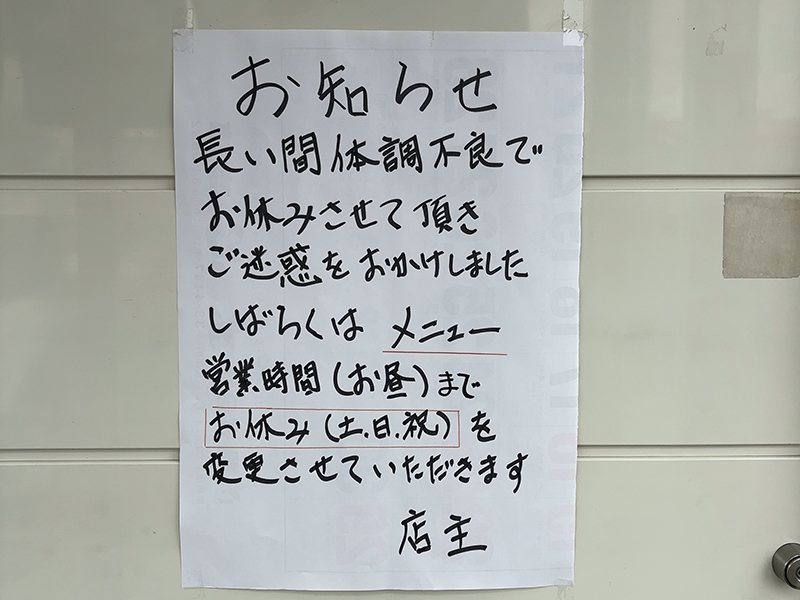 お知らせ
長い間体調不良で
お休みさせて頂き
ご迷惑をおかけしました
しばらくは メニュー
営業時間(お昼)まで
お休み(土.日.祝)を
変更させていただきます
店主